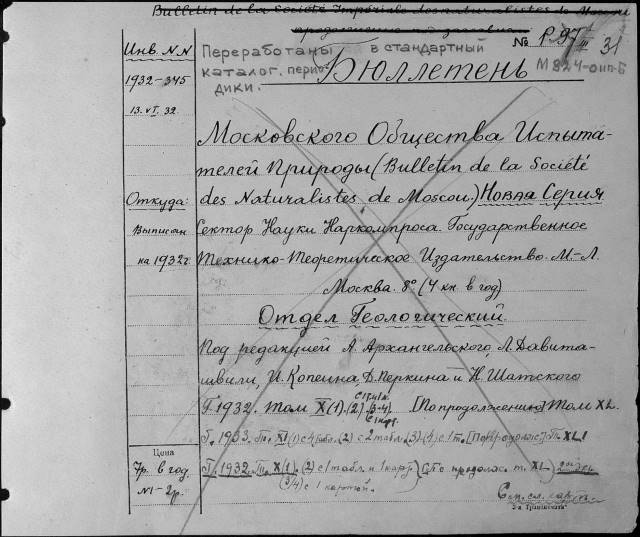 Bulletin de la Société Impériale des naturalistes de Moscou
Инв. N.N
1932-345
13.VI.32.
Переработаны в стандартный
каталог. перио-
дики.
№ P 97/III 31
Бюллетень
М 824-оип-Б
Московского Общества Испыта-
телей Природы (Bulletin de la Société
des Naturalistes de Moscou.) Новая Серия
Откуда:
Выписан
на 1932г.
Сектор Науки Наркомпроса. Государственное
Технико-Теоретическое Издательство. М-Л.
Москва. 8° (4 кн. в год)
Отдел Геологический.
Под редакцией А. Архангельского, Л. Давита-
швили, И. Копеина, Д. Перкина и Н. Шатского
Г. 1932. Том X (1). (2) (3-4) [По продолжению] Том XL.
с 1 карт.
Г. 1933. Т. XI (1) с 4 табл. (2) с 2 табл. (3) (4) с 1 т.
Цена
7р. в год.
№1-2р.
Г. 1932. Т. X (1). (2) с 1 табл. и 1 карт.
(3/4) с 1 картой.